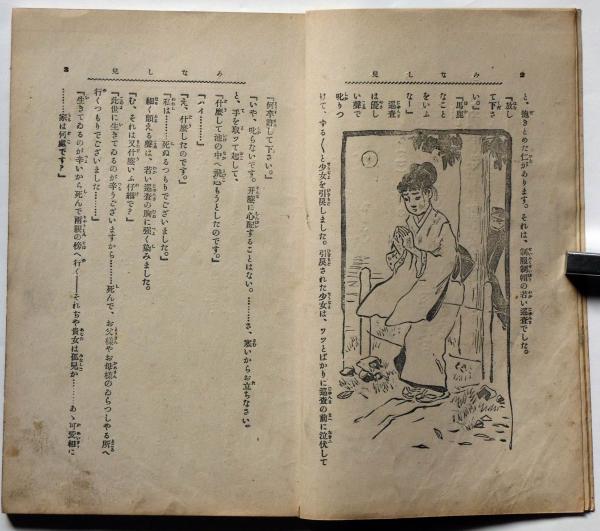 2
みなし兒
と、抱きとめた仁があります。それは、制服制帽の若い巡査でした。
『放し
て下さ
い。』
『馬鹿
なこと
をいふ
なー』
巡査
は優し
い聲で
叱りつ
けて、ずる〳〵と少女を引戻しました。引戻された少女は、ワッとばかりに巡査の前に泣伏して
みなし兒
3
『何卒許して下さい。』
『いや、叱らないです。
心配することはない。………さ、寒いからお立ちなさい』
と、手を取つて起して、
『什麽して池の中へ飛込もうとしたのです。』
『ハイ………』
『え、什麽したのです。』
『私は……死ぬるつもりでございました。』
細く顫える聲は、若い巡査の胸に強く染みました。
『む、それは又什麽いふ仔細で？』
『此世に生きてゐるのが辛うございますから………死んで、お父樣やお母樣のゐらつしやる所へ
行くつもりでございました………』
『生きてゐるのが辛いから死んで兩親の傍へ行く──それぢや貴女は孤兒か………あゝ可愛相に
………家は何處です？』